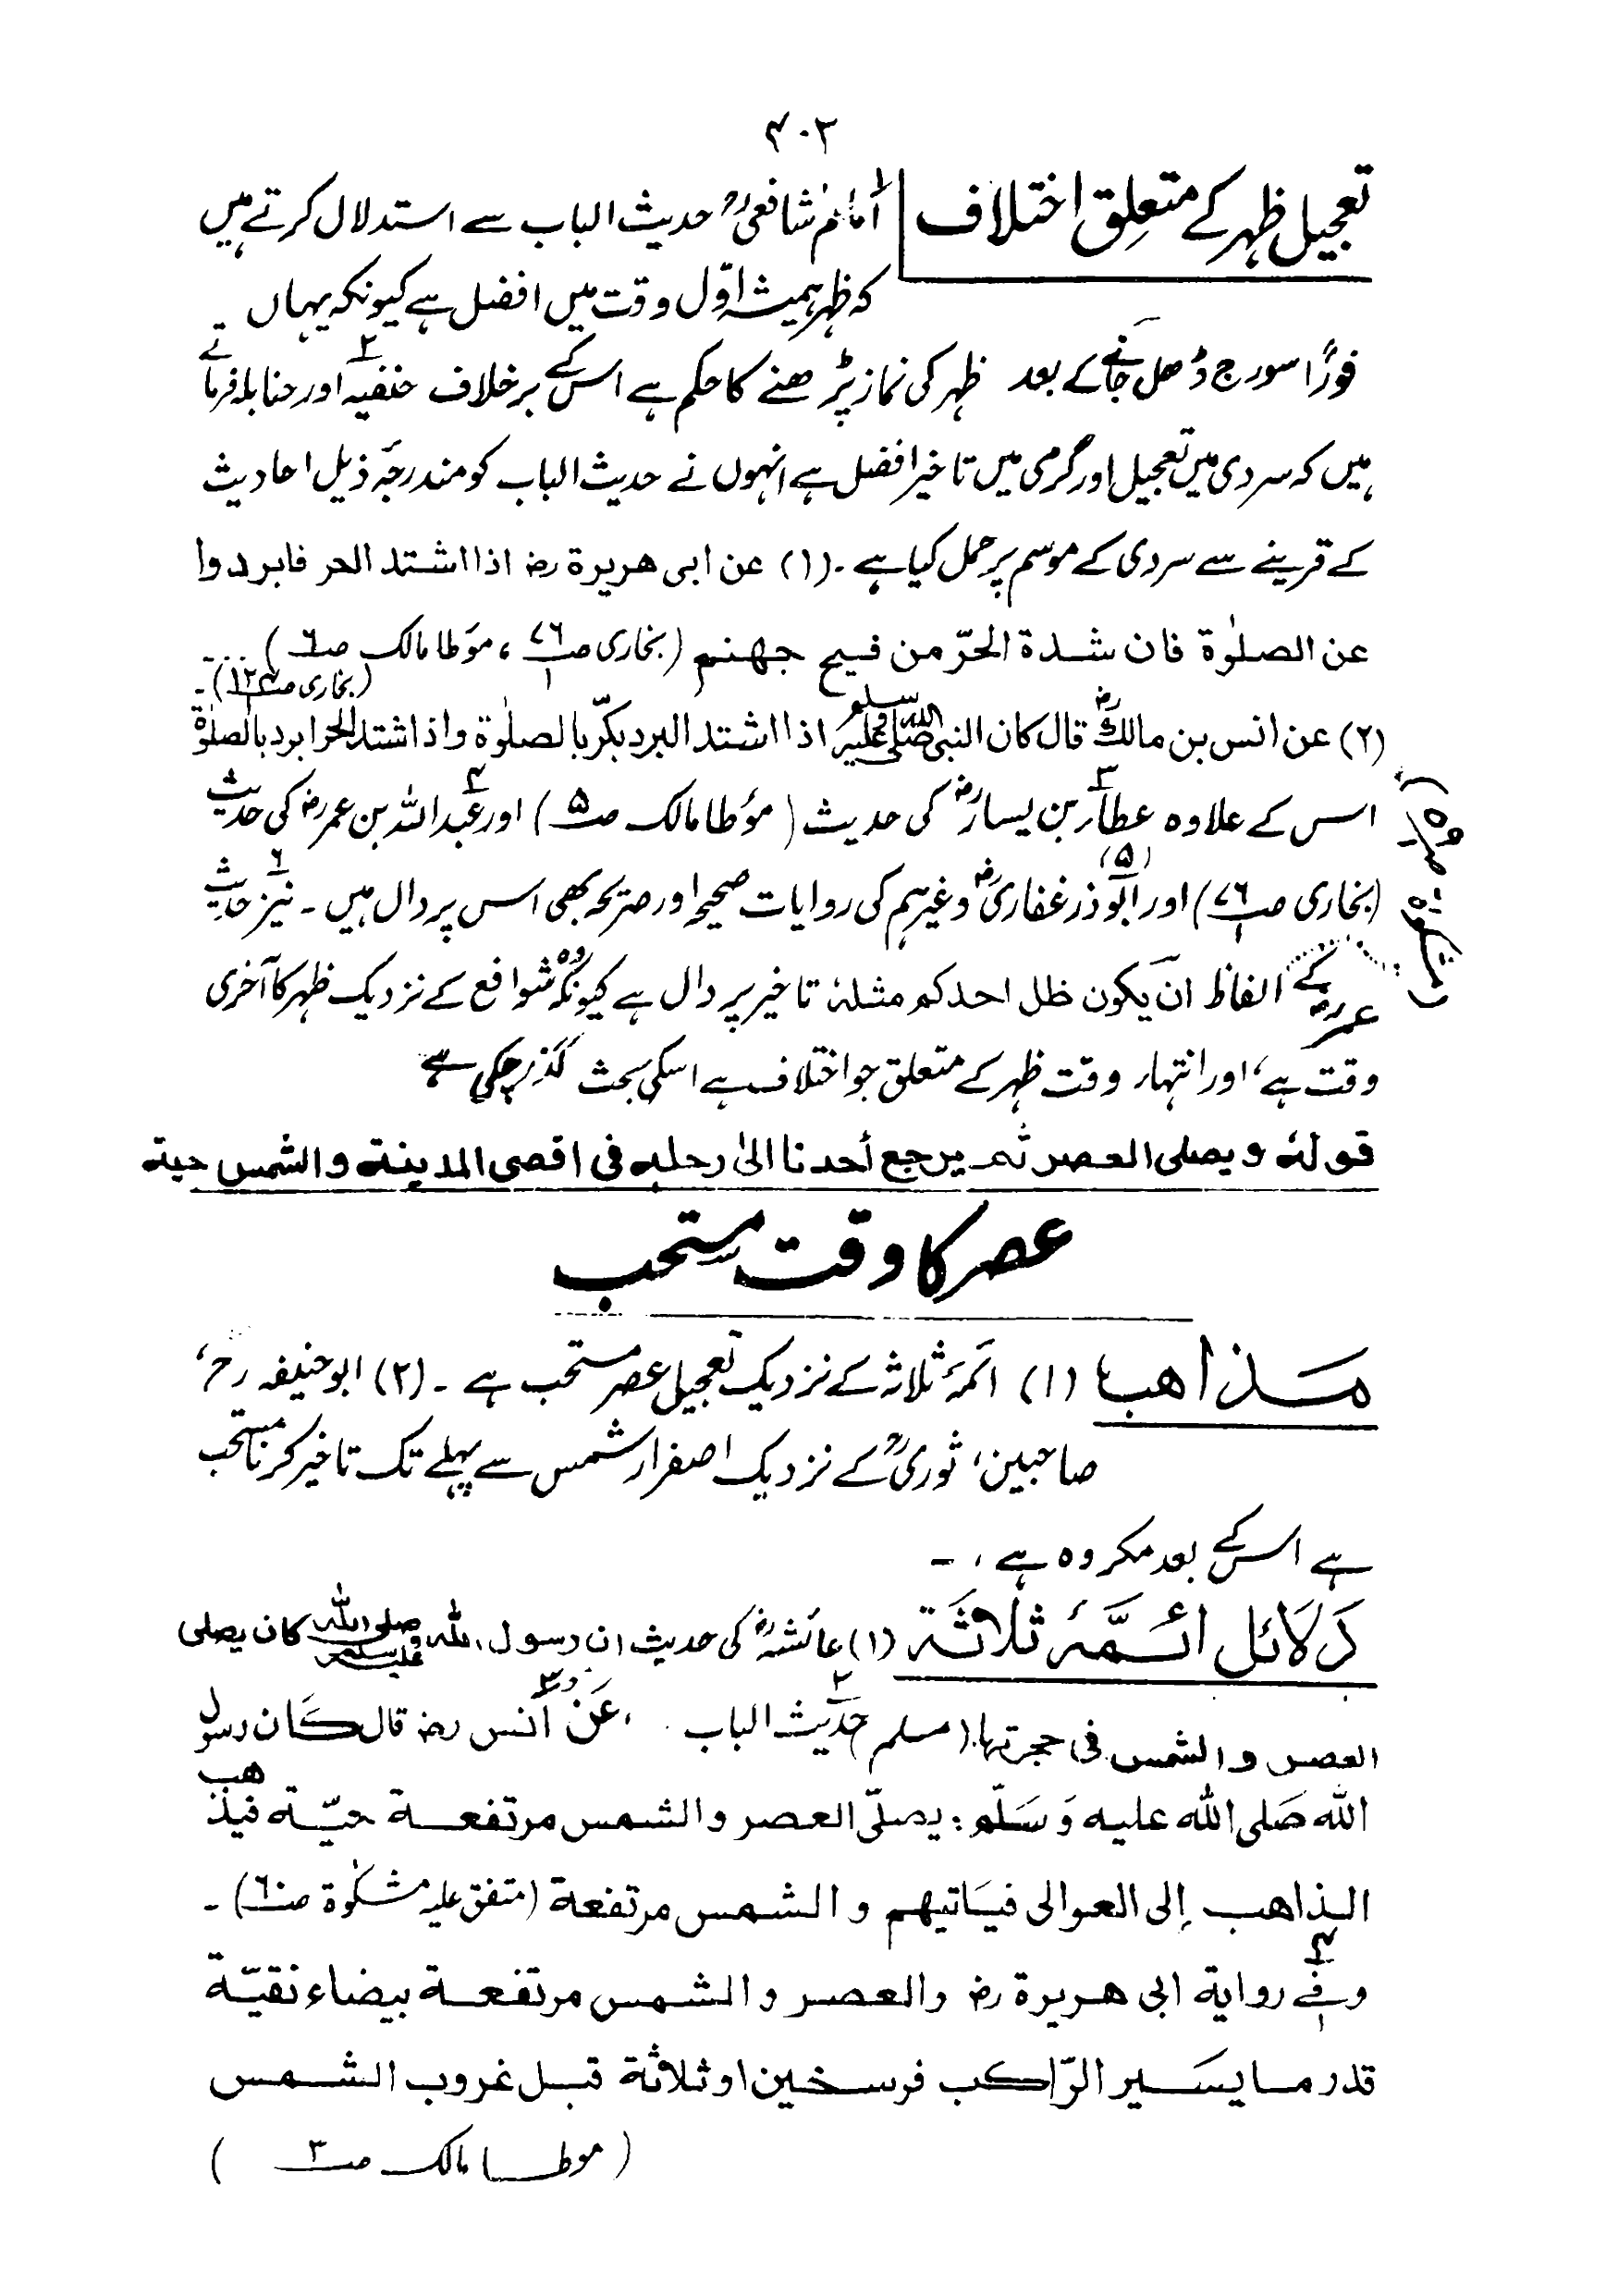 ۴۰۲
تعجیل ظہر کے متعلق اختلاف
امام شافعیؒ حدیث الباب سے استدلال کرتے ہیں
کہ ظہر ہمیشہ اوّل وقت میں افضل ہے کیونکہ یہاں
فورًا سورج ڈھل جانے کے بعد ظہر کی نماز پڑھنے کا حکم ہے اس کے برخلاف حنفیہ اور حنابلہ فرماتے
ہیں کہ سردی میں تعجیل اور گرمی میں تاخیر افضل ہے انہوں نے حدیث الباب کو مندرجۂ ذیل احادیث
کے قرینے سے سردی کے موسم پر حمل کیا ہے ۔ (۱) عن ابی ھریرۃ رضـ اذا اشتد الحر فابردوا
عن الصلوٰۃ فان شدۃ الحرّ من فیح جھنم (بخاری صـ ۷۶/۱ ، موٗطا مالک صـ ٦) ۔
(۲) عن انس بن مالکؓ قال کان النبی صلی اللہ علیہ وسلم اذا اشتد البرد بکّر بالصلوٰۃ واذا اشتد الحر ابرد بالصلوٰۃ
(بخاری صـ ۱۲۴/۱) ۔
اس کے علاوہ عطاء بن یسارؓ کی حدیث (موٗطا مالک صـ ۵) اور عبداللہ بن عمرؓ کی حدیث
(بخاری صـ ۷۶/۱) اور (۵) ابوذر غفاریؓ وغیرہم کی روایات صحیحہ اور صریحہ بھی اس پر دال ہیں ۔ نیز حدیث
عمرؓ کے الفاظ ان یکون ظل احدکم مثلہٗ تاخیر پر دال ہے کیونکہ وہ شوافع کے نزدیک ظہر کا آخری
وقت ہے، اور انتہاء وقت ظہر کے متعلق جو اختلاف ہے اسکی بحث گذر چکی ہے
قولہٗ ویصلی العصر ثم یرجع أحدنا الیٰ رحلہ فی اقصی المدینۃ والشمس حیۃ
عصر کا وقت مستحب
مذاھب (۱) ائمۂ ثلاثہ کے نزدیک تعجیل عصر مستحب ہے ۔ (۲) ابوحنیفہ رحـ،
صاحبین، ثوریؒ کے نزدیک اصفرار شمس سے پہلے تک تاخیر کرنا مستحب
ہے اس کے بعد مکروہ ہے ، ۔
دَلَائل ائمَّۂ ثلاثَۃ (۱) عائشہؓ کی حدیث ان رسول اللہ صلی اللہ علیہ وسلم کان یصلی
العصر والشمس فی حجرتھا (مسلم حدیث الباب ، عَن انس رضـ قال کَان رسول
اللہ صَلی اللہ علیہ وَسَلّم : یصلّی العصر والشمس مرتفعۃ حیّۃ فیذھب
الذاھب إلی العوالی فیَاتیھم والشمس مرتفعۃ (متفق علیہ مشکوٰۃ صـ ٦۰) ۔
وفی روایۃ ابی ھریرۃ رضـ والعصر والشمس مرتفعۃ بیضاء نقیّۃ
قدر ما یسَیر الرّاکب فرسخین او ثلاثۃ قبل غروب الشمس
( موطا مالک صـ ۳ )